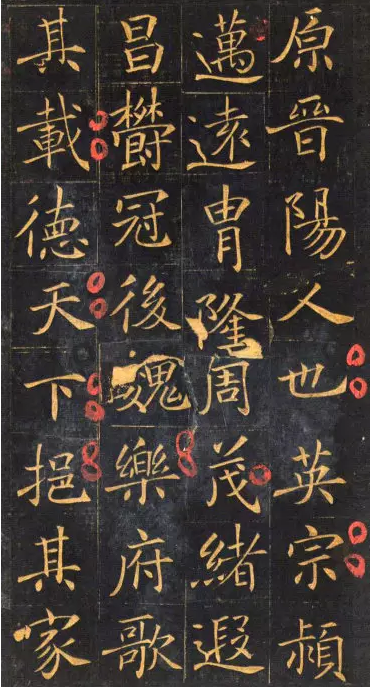 原晉陽人也英宗頴
邁遠冑隆周茂緒遐
昌欝冠後魏樂府歌
其載德天下挹其家